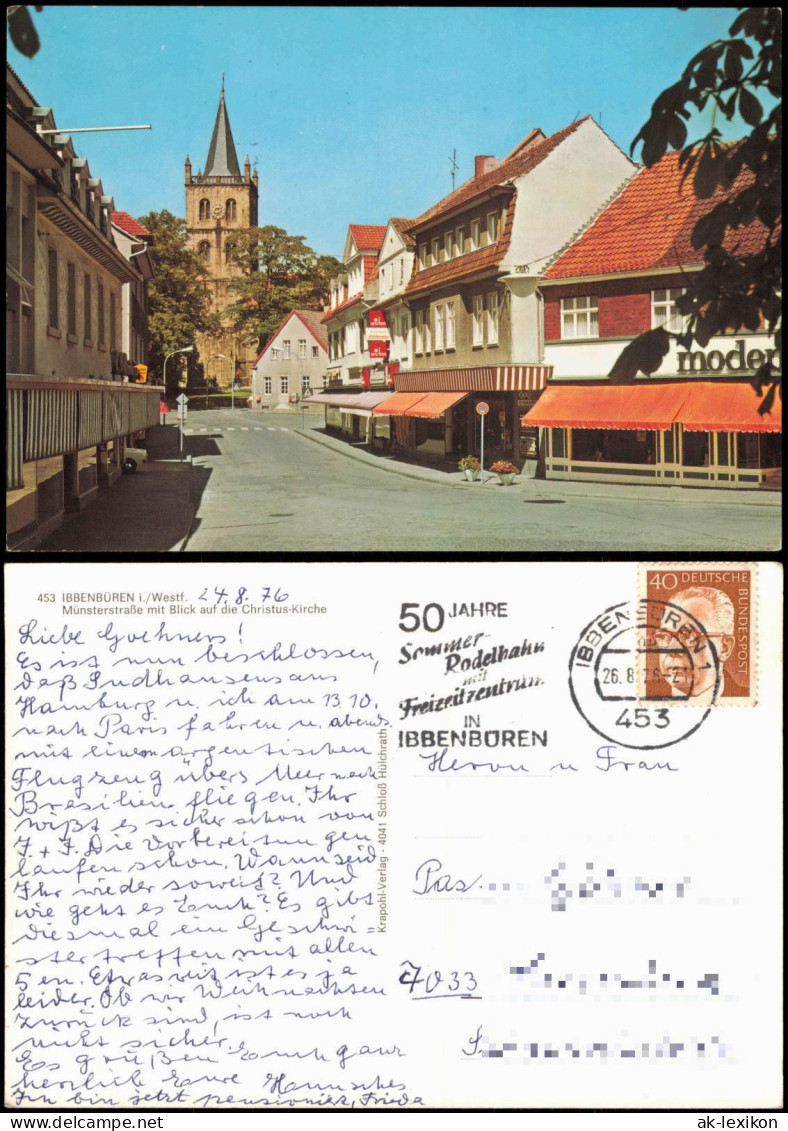 moder
453 IBBENBÜREN i./Westf. 24.8.76
Münsterstraße mit Blick auf die Christus-Kirche
Liebe Goehners!
Es ist nun beschlossen,
daß Sudhausens aus
Hamburg u. ich am 13.10.
nach Paris fahren u. abends
mit einem argentischen
Flugzeug übers Meer nach
Brasilien fliegen. Ihr
wißt es sicher schon von
J. + F. Die Vorbereitungen
laufen schon. Wann seid
Ihr wieder soweit? Und
wie geht es Euch? Es gibt
diesmal ein Geschwi=
stertreffen mit allen
5 en. Etwas weit ist es ja
leider. Ob wir Weihnachten
zurück sind, ist noch
nicht sicher.
Es grüßen Euch ganz
herzlich Eure Hannsches
Ich bin jetzt pensioniert, Frieda
Krapohl-Verlag · 4041 Schloß Hülchrath
50 JAHRE
Sommer-
Rodelbahn
mit
Freizeitzentrum
IN
IBBENBÜREN
IBBENBÜREN 1
26.8.76-21
453
40 DEUTSCHE
BUNDESPOST
Herrn u Frau
Pas
7033
ak-lexikon